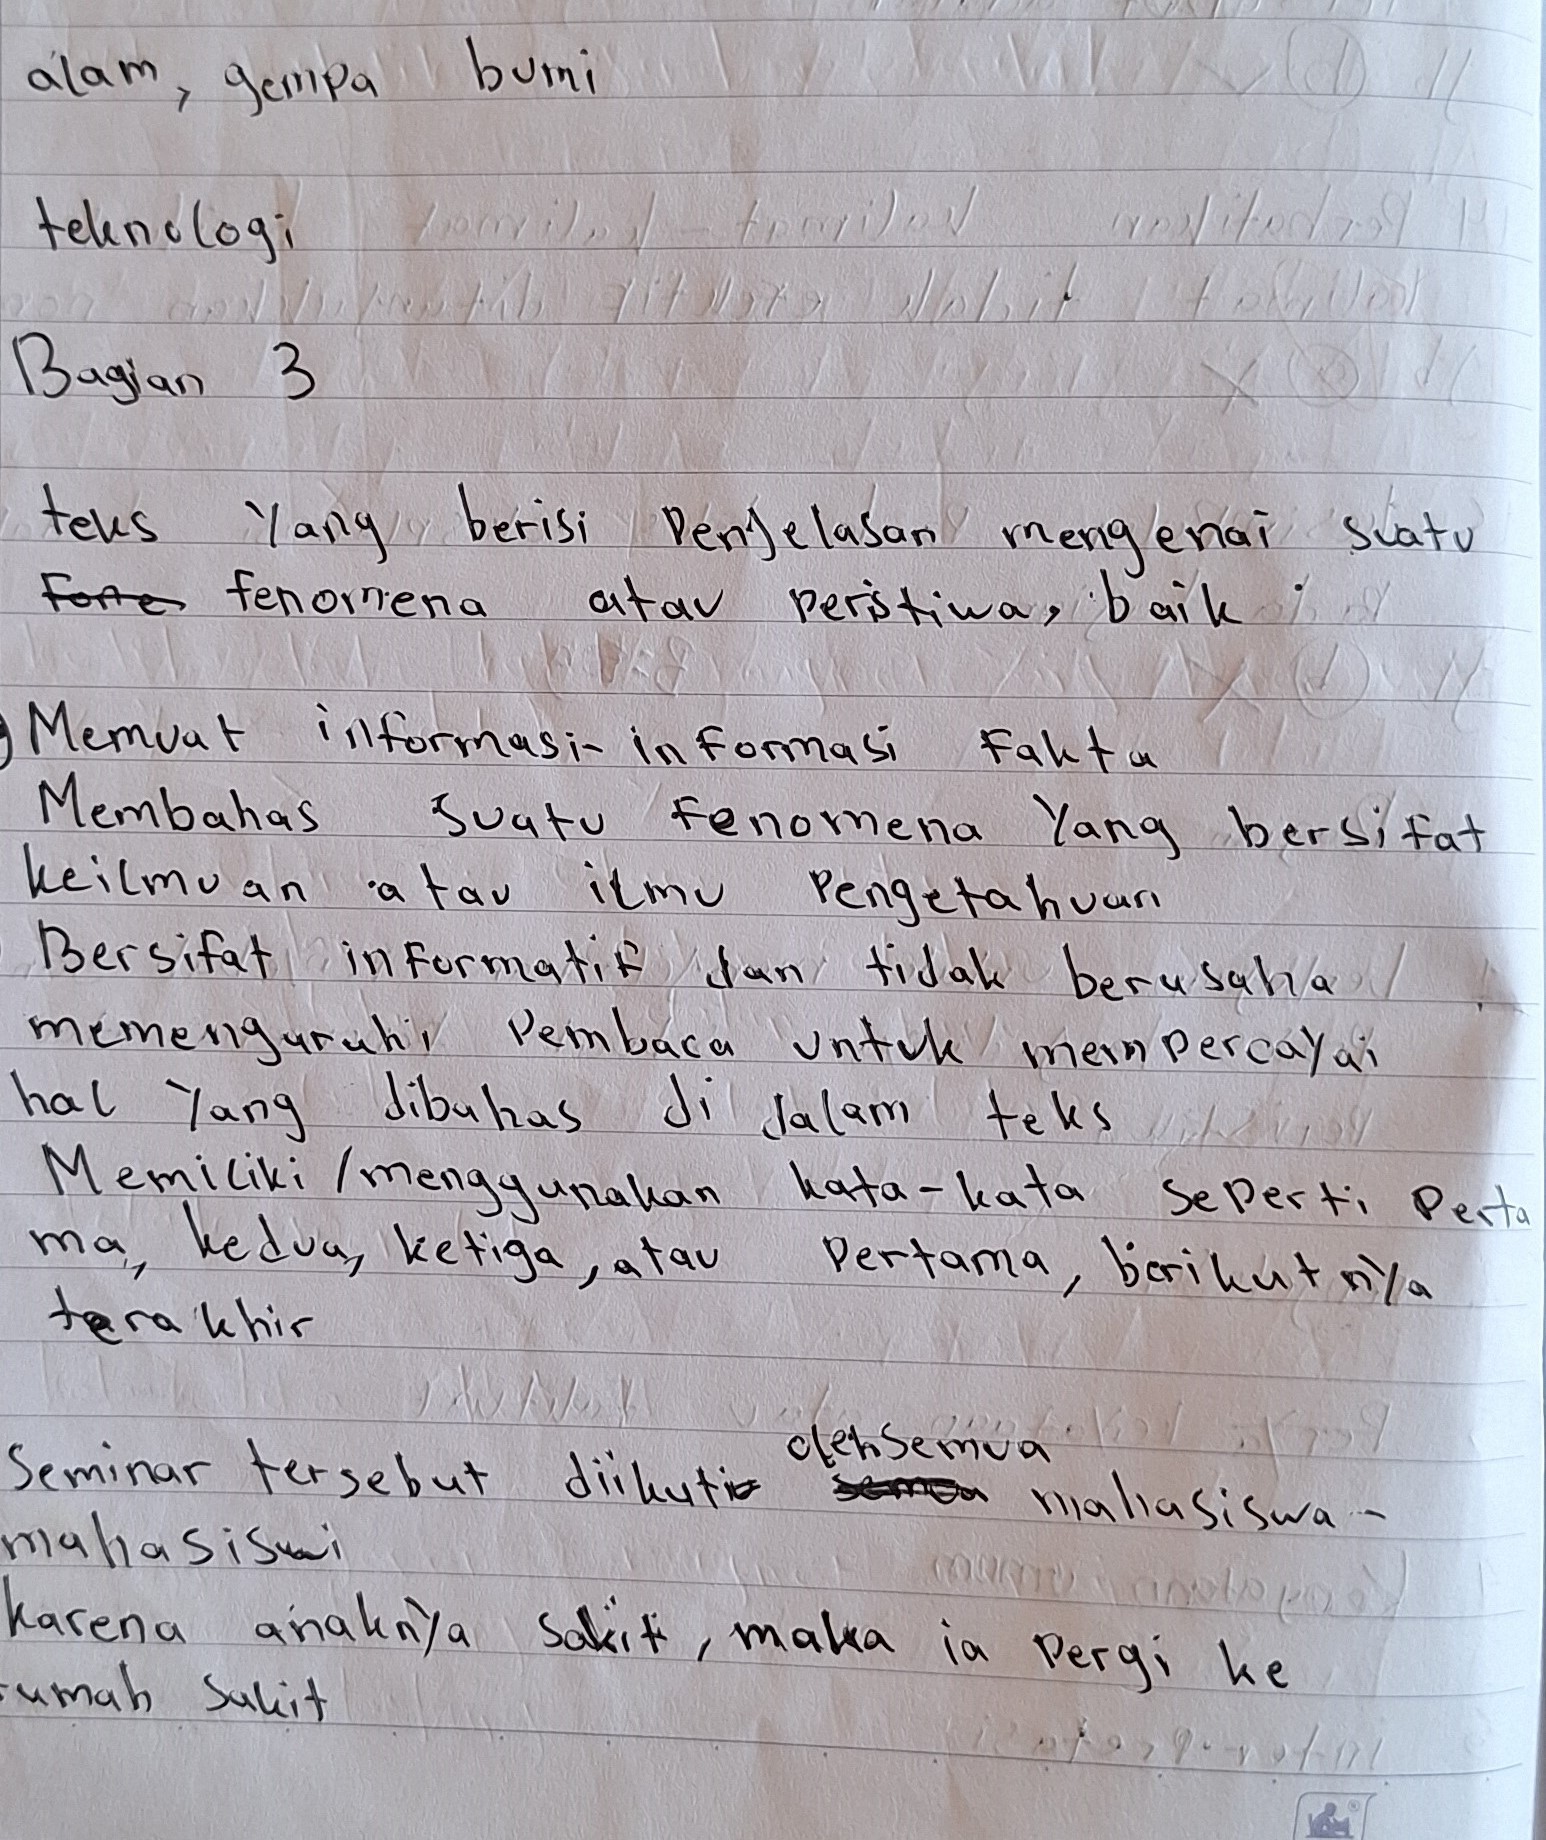 alam, gempa bumi
teknologi
Bagian 3
teks Yang berisi Penjelasan mengenai suatu
fenomena atau Peristiwa, baik
Memuat informasi-informasi Fakta
Membahas suatu Fenomena Yang bersifat
keilmuan atau ilmu Pengetahuan
Bersifat informatif dan tidak berusaha
memengaruhi Pembaca untuk mempercayai
hal Yang dibahas di dalam teks
Memiliki/menggunakan kata-kata seperti Perta
ma, kedua, ketiga, atau Pertama, berikutnya
terakhir
Seminar tersebut diikuti oleh semua mahasiswa-
mahasiswi
karena anaknya sakit, maka ia Pergi ke
rumah sakit